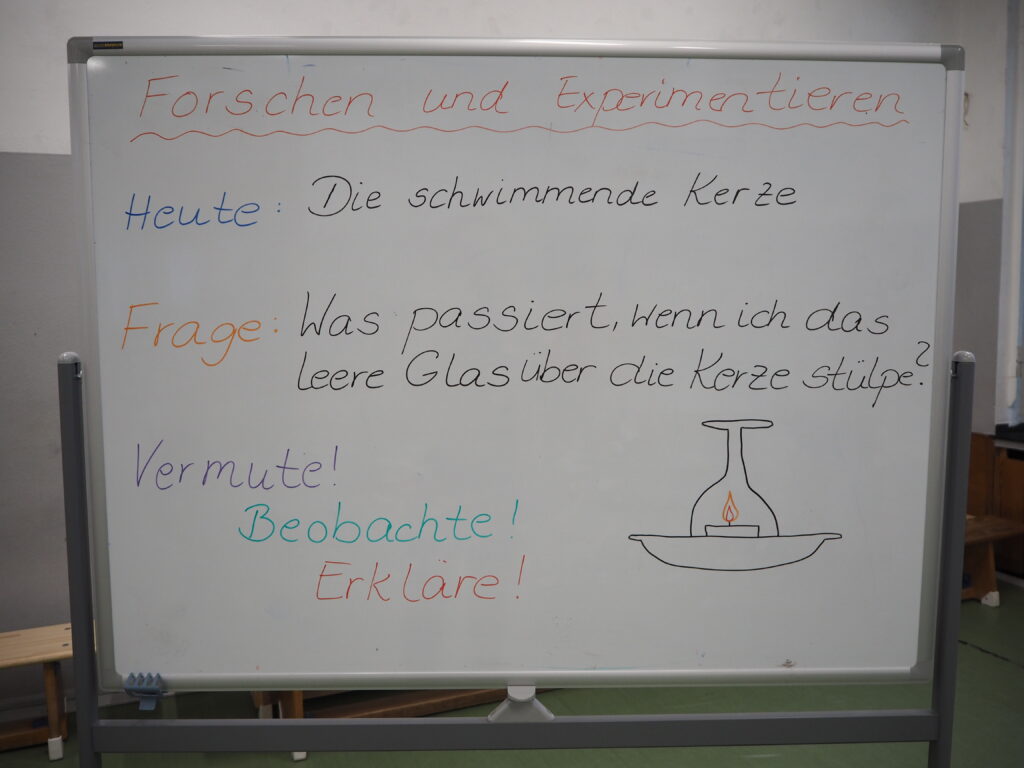 Forschen und Experimentieren
Heute: Die schwimmende Kerze
Frage: Was passiert, wenn ich das
leere Glas über die Kerze stülpe?
Vermute!
Beobachte!
Erkläre!